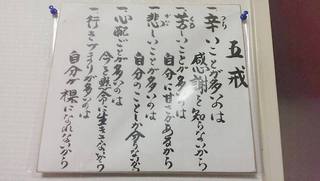 五戒
一、辛いことが多いのは
感謝を知らないから
一、苦しいことが多いのは
自分に甘さがあるから
一、悲しいことが多いのは
自分のことしか分らないから
一、心配ごとが多いのは
今を懸命に生きてないから
一、行きづまりが多いのは
自分が裸になれないから